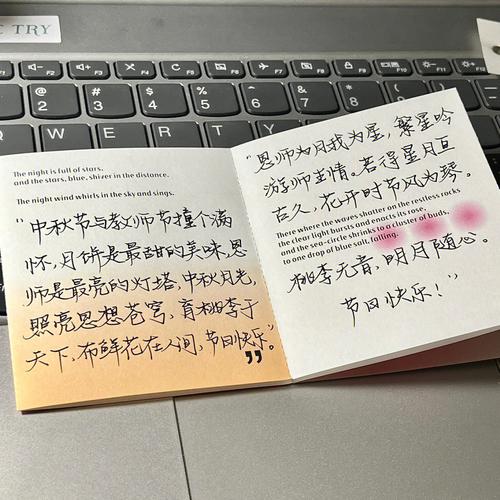 TRY
F1
F2
F3
F4
F5
F6
F7
F8
F9
F10
F11
@
2
#
3
$
4
%
5
^
6
&
7
8
9
Q
W
E
The night is full of stars,
and the stars, blue, shizer in the distance.
The night wind whirls in the sky and sings.
“中秋节与教师节撞个满
怀，月饼是最甜的美味，恩
师是最亮的灯塔，中秋月光，
照亮思想苍穹，育桃李于
天下，布鲜花在人间，节日快乐”。
“恩师为月我为星，繁星吟
游师生情。若得星月亘
古久，花开时节风为琴。
There where the waves shatter on the restless rocks
the clear light bursts and enacts its rose,
and the sea-circle shrinks to a cluster of buds,
to one drop of blue salt, falling.
桃李无言，明月随心。
节日快乐！”